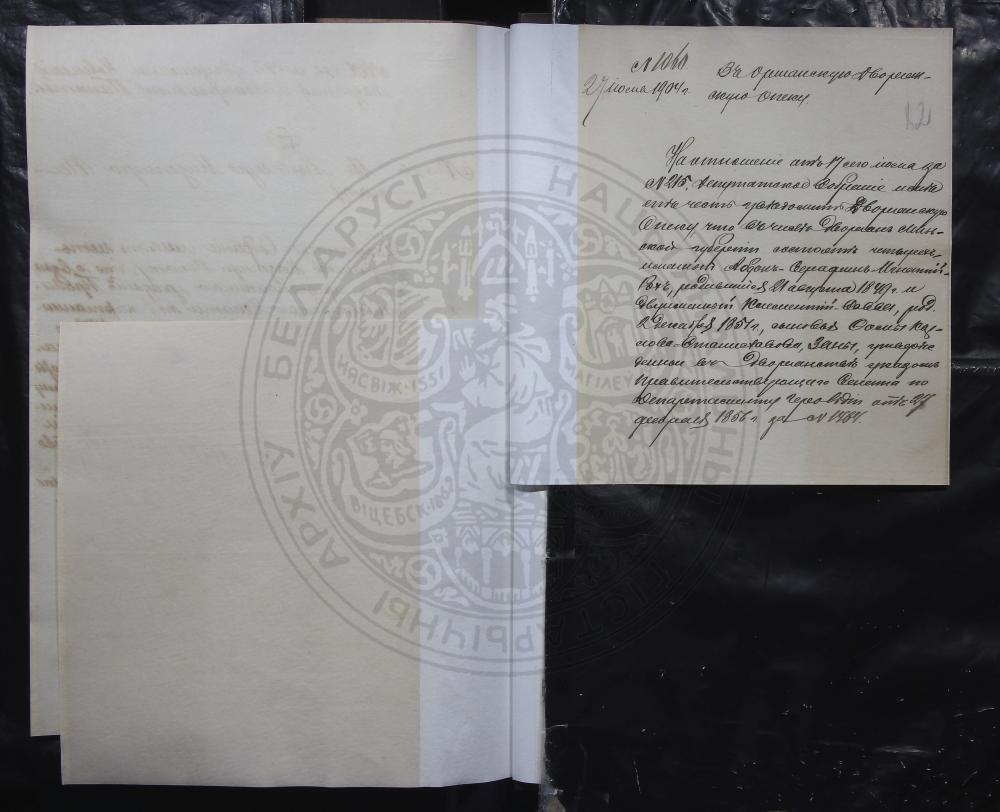 № 1060
27 июля 1904 г.
Въ Оршанскую Дворян-
скую Опеку.
12
На отношеніе отъ 17 сего июля за
№ 215, Депутатское Собраніе имѣ
етъ честь увѣдомить Дворянскую
Опеку что въ числѣ Дворянъ Мин-
ской губерніи состоятъ
Антонъ-Серафимъ-Игнатій-
Рохъ, родившійся 21 августа 1849 г. и
Каллистъ-Савва, род.
2 Декабря 1851 г., сыновья Осипа Каз-
Станиславова, Заны, утверж
денные въ Дворянствѣ указомъ
Правительствующаго Сената по
Департаменту Герольдіи отъ 27
февраля 1856 г. за № 1464.
АРХІЎ БЕЛАРУСІ
НАЦ
ГІСТАРЫЧНЫ
НЯСВІЖ·1551
МАГІЛЕЎ
ВІЦЕБСК·1862